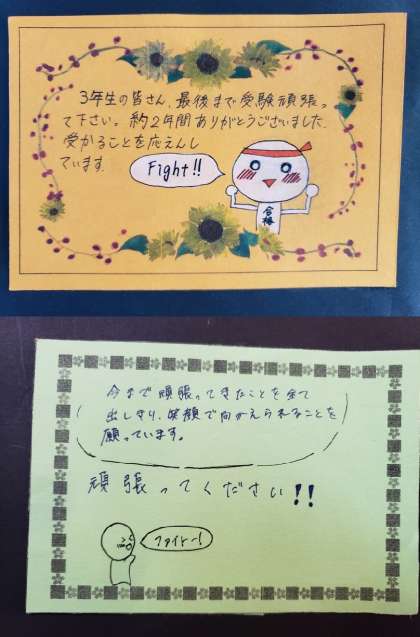 3年生の皆さん、最後まで受験頑張っ
て下さい。約2年間ありがとうございました。
受かることを応えんし
ています。
Fight!!
合格
今まで頑張ってきたことを全て
出しきり、笑顔で向かえられることを
願っています。
頑張ってください!!
ファイトー!